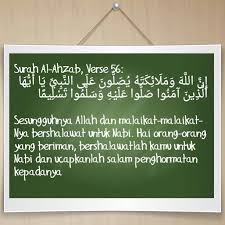 Surah Al-Ahzab, Verse 56:
إِنَّ اللَّهَ وَمَلَائِكَتَهُ يُصَلُّونَ عَلَى النَّبِيِّ يَا أَيُّهَا
الَّذِينَ آمَنُوا صَلُّوا عَلَيْهِ وَسَلِّمُوا تَسْلِيمًا
Sesungguhnya Allah dan malaikat-malaikat-
Nya bershalawat untuk Nabi. Hai orang-orang
yang beriman, bershalawatlah kamu untuk
Nabi dan ucapkanlah salam penghormatan
kepadanya